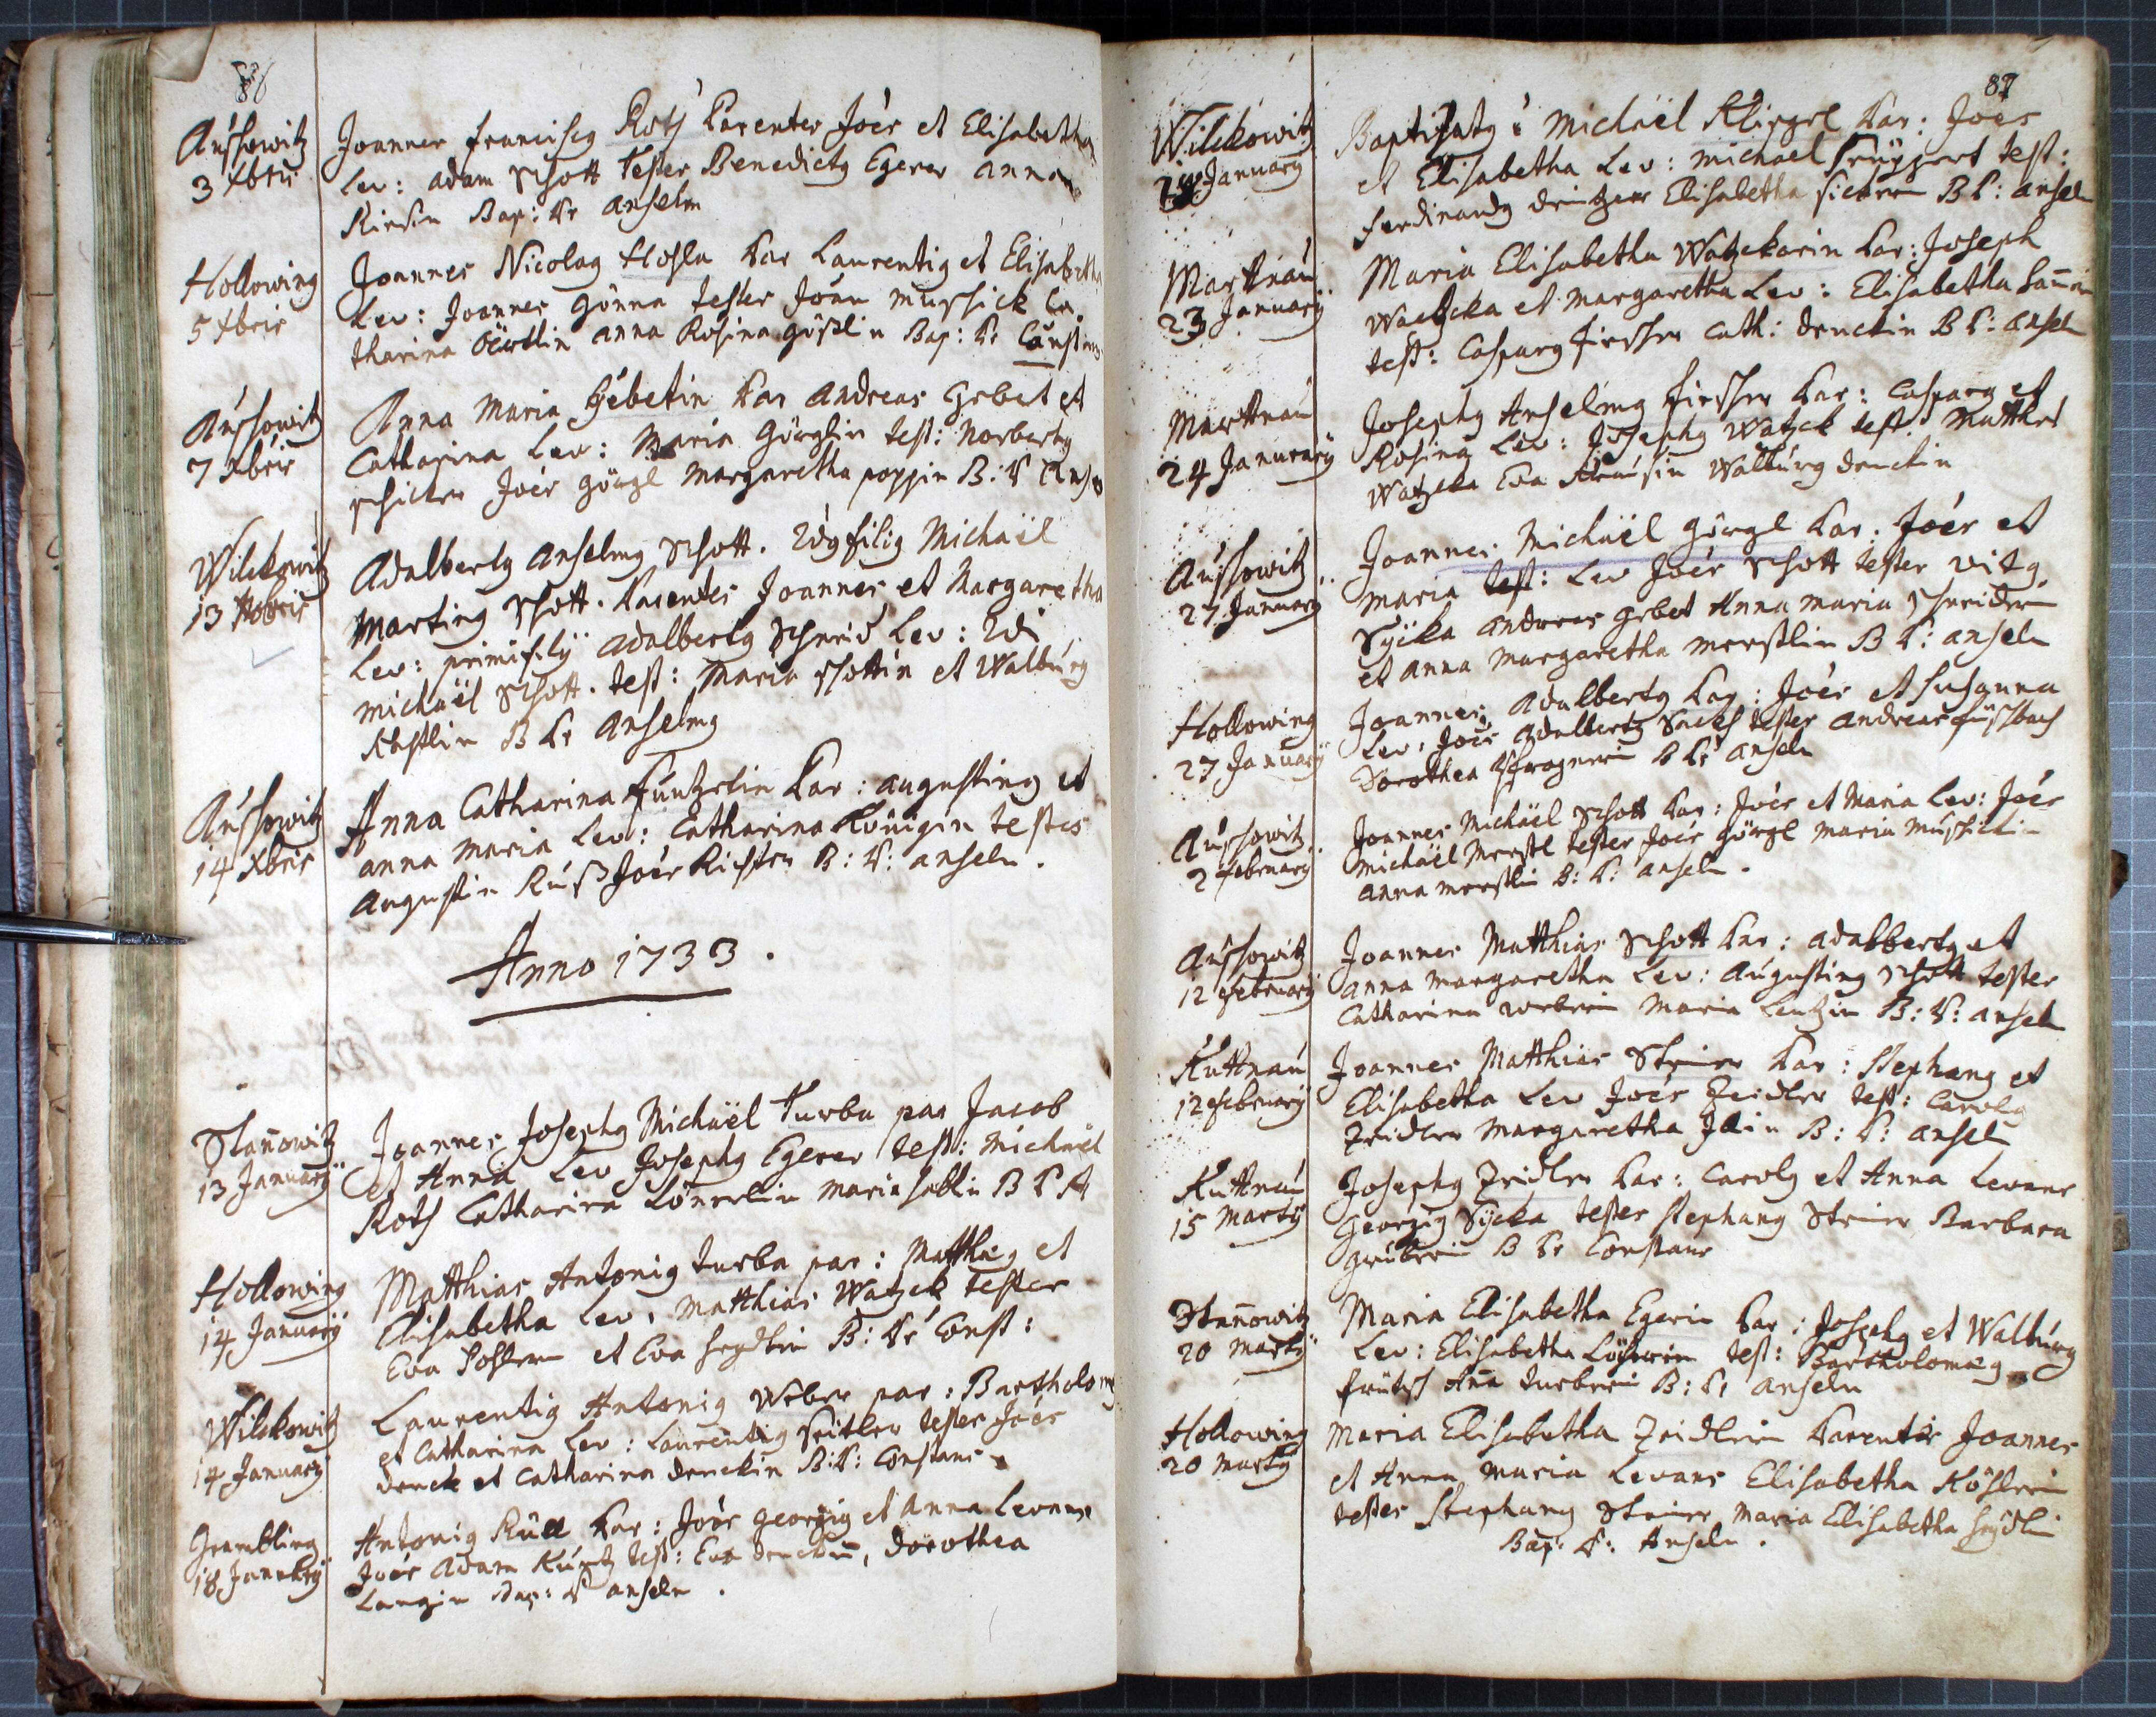 86
Auschowitz
3 Xbris
Joannes Franciscq Roth Parentes Joës et Elisabetha
Lev: Adam Schott Testes Benedictq Egerer Anna
Bap: Pr Anselm
Hollowing
5 Xbris
Joannes Nicolaq Hosla Par Laurentiq et Elisabetha
Lev: Joannes Gönna testes Joan Muschick Ca
tharina Anna Rosina Bap: Pr Constans
Auschowitz
7 Xbris
Anna Maria Gebetin Par Andreas Gebet et
Catharina Lev: Maria Görglin test: Norbertq
Joës Görgl Margaretha poppin B: P Ans
Wilckowitz
13 Xbris
Adalbertq Anselmq Schott. 2dq filiq Michaël
Martinq Schott. Parentes Joannes et Margaretha
Lev: primi filÿ Adalbertq Schneid Lev: 2di
Michaël Schott. test: Maria Schottin et Walburg
B Pr Anselmq
Auschowitz
14 Xbris
Anna Catharina Par: Augustinq et
Anna Maria Lev: Catharina Königin testes
Augustin Ruß Joës Richter B: P: Anselm.
Anno 1733.
Stañowitz
13 Januarÿ
Joannes Josephq Michaël Turba par Jacob
et Anna Lev Josephq Egerer test: Michaël
Roth Catharina Maria B P A
Hollowing
14 Januarÿ
Matthias Antoniq Turba par: Matthæq et
Elisabetha Lev: Matthias Watzek testes
Eva et Eva B: Pr Const:
Wilckowitz
14 Januarÿ
Laurentiq Antoniq Weber par: Bartholomq
et Catharina Lev: Laurentiq Testes Joës
Denck et Catharina Denckin B: P: Constans
Grambling
18 Januarÿ
Antoniq Rull Par: Joës Georgiq et Anna Levans
Joës Adam Kuntz test: Eva Dorothea
Langin Bap: P Anselm.
87
Wilckowitz
Januarÿ
Baptisatq ë Michaël Kliegel Par: Joës
et Elisabetha Lev: Michael test:
Ferdinandq Elisabetha B P: Anselm
Marttnau
23 Januarÿ
Maria Elisabetha Watzekarin Par: Joseph
Watzcka et Margaretha Lev: Elisabetha
test: Casparq Fischer Cath: Denckin B P: Anselm
Marttnau
24 Januarÿ
Josephq Anselmq Fischer Par: Casparq et
Rosina Lev: Josephq Watzek test: Matthes
Watzeka Eva Krausin Walburg Denckin
Auschowitz
27 Januarÿ
Joannes Michaël Görgl Par: Joës et
Maria Lev Joës Schott testes Vitq
Sÿcka Andreas Gebet Anna Maria Schneiderin
et Anna Margaretha B P: Anselm
Hollowing
27 Januarÿ
Joannes Adalbertq Par: Joës et Susanna
Lev: Joës Adalbertq testes Andreas
Dorothea B Pr Anselm
Auschowitz
2 Februarÿ
Joannes Michaël Schott Par: Joës et Maria Lev: Joës
Michaël testes Joës Görgl Maria Muschickin
Anna B: P: Anselm.
Auschowitz
12 Februarÿ
Joannes Matthias Schott Par: Adalbertq et
Anna Margaretha Lev: Augustinq Schott testes
Catharina Weberin Maria B: P: Anselm
Kuttnau
12 Februarÿ
Joannes Matthias Steiner Par: Stephanq et
Elisabetha Lev Joës Zeidler test: Carolq
Zeidler Margaretha B: P: Anselm
Kuttnau
15 Martÿ
Josephq Zeidler Par: Carolq et Anna Levans
Georgiq Sÿcka testes Stephanq Steiner Barbara
Gruberin B Pr Constans
Stañowitz
20 Martÿ
Maria Elisabetha Egerin Par: Josephq et Walburg
Lev: Elisabetha test: Bartholomæq
Aña Turbin B: P: Anselm
Hollowing
20 Martÿ
Maria Elisabetha Zeidlerin Parentes Joannes
et Anna Maria Levans Elisabetha Köhlerin
testes Stephanq Steiner Maria Elisabetha
Bap: P: Anselm.